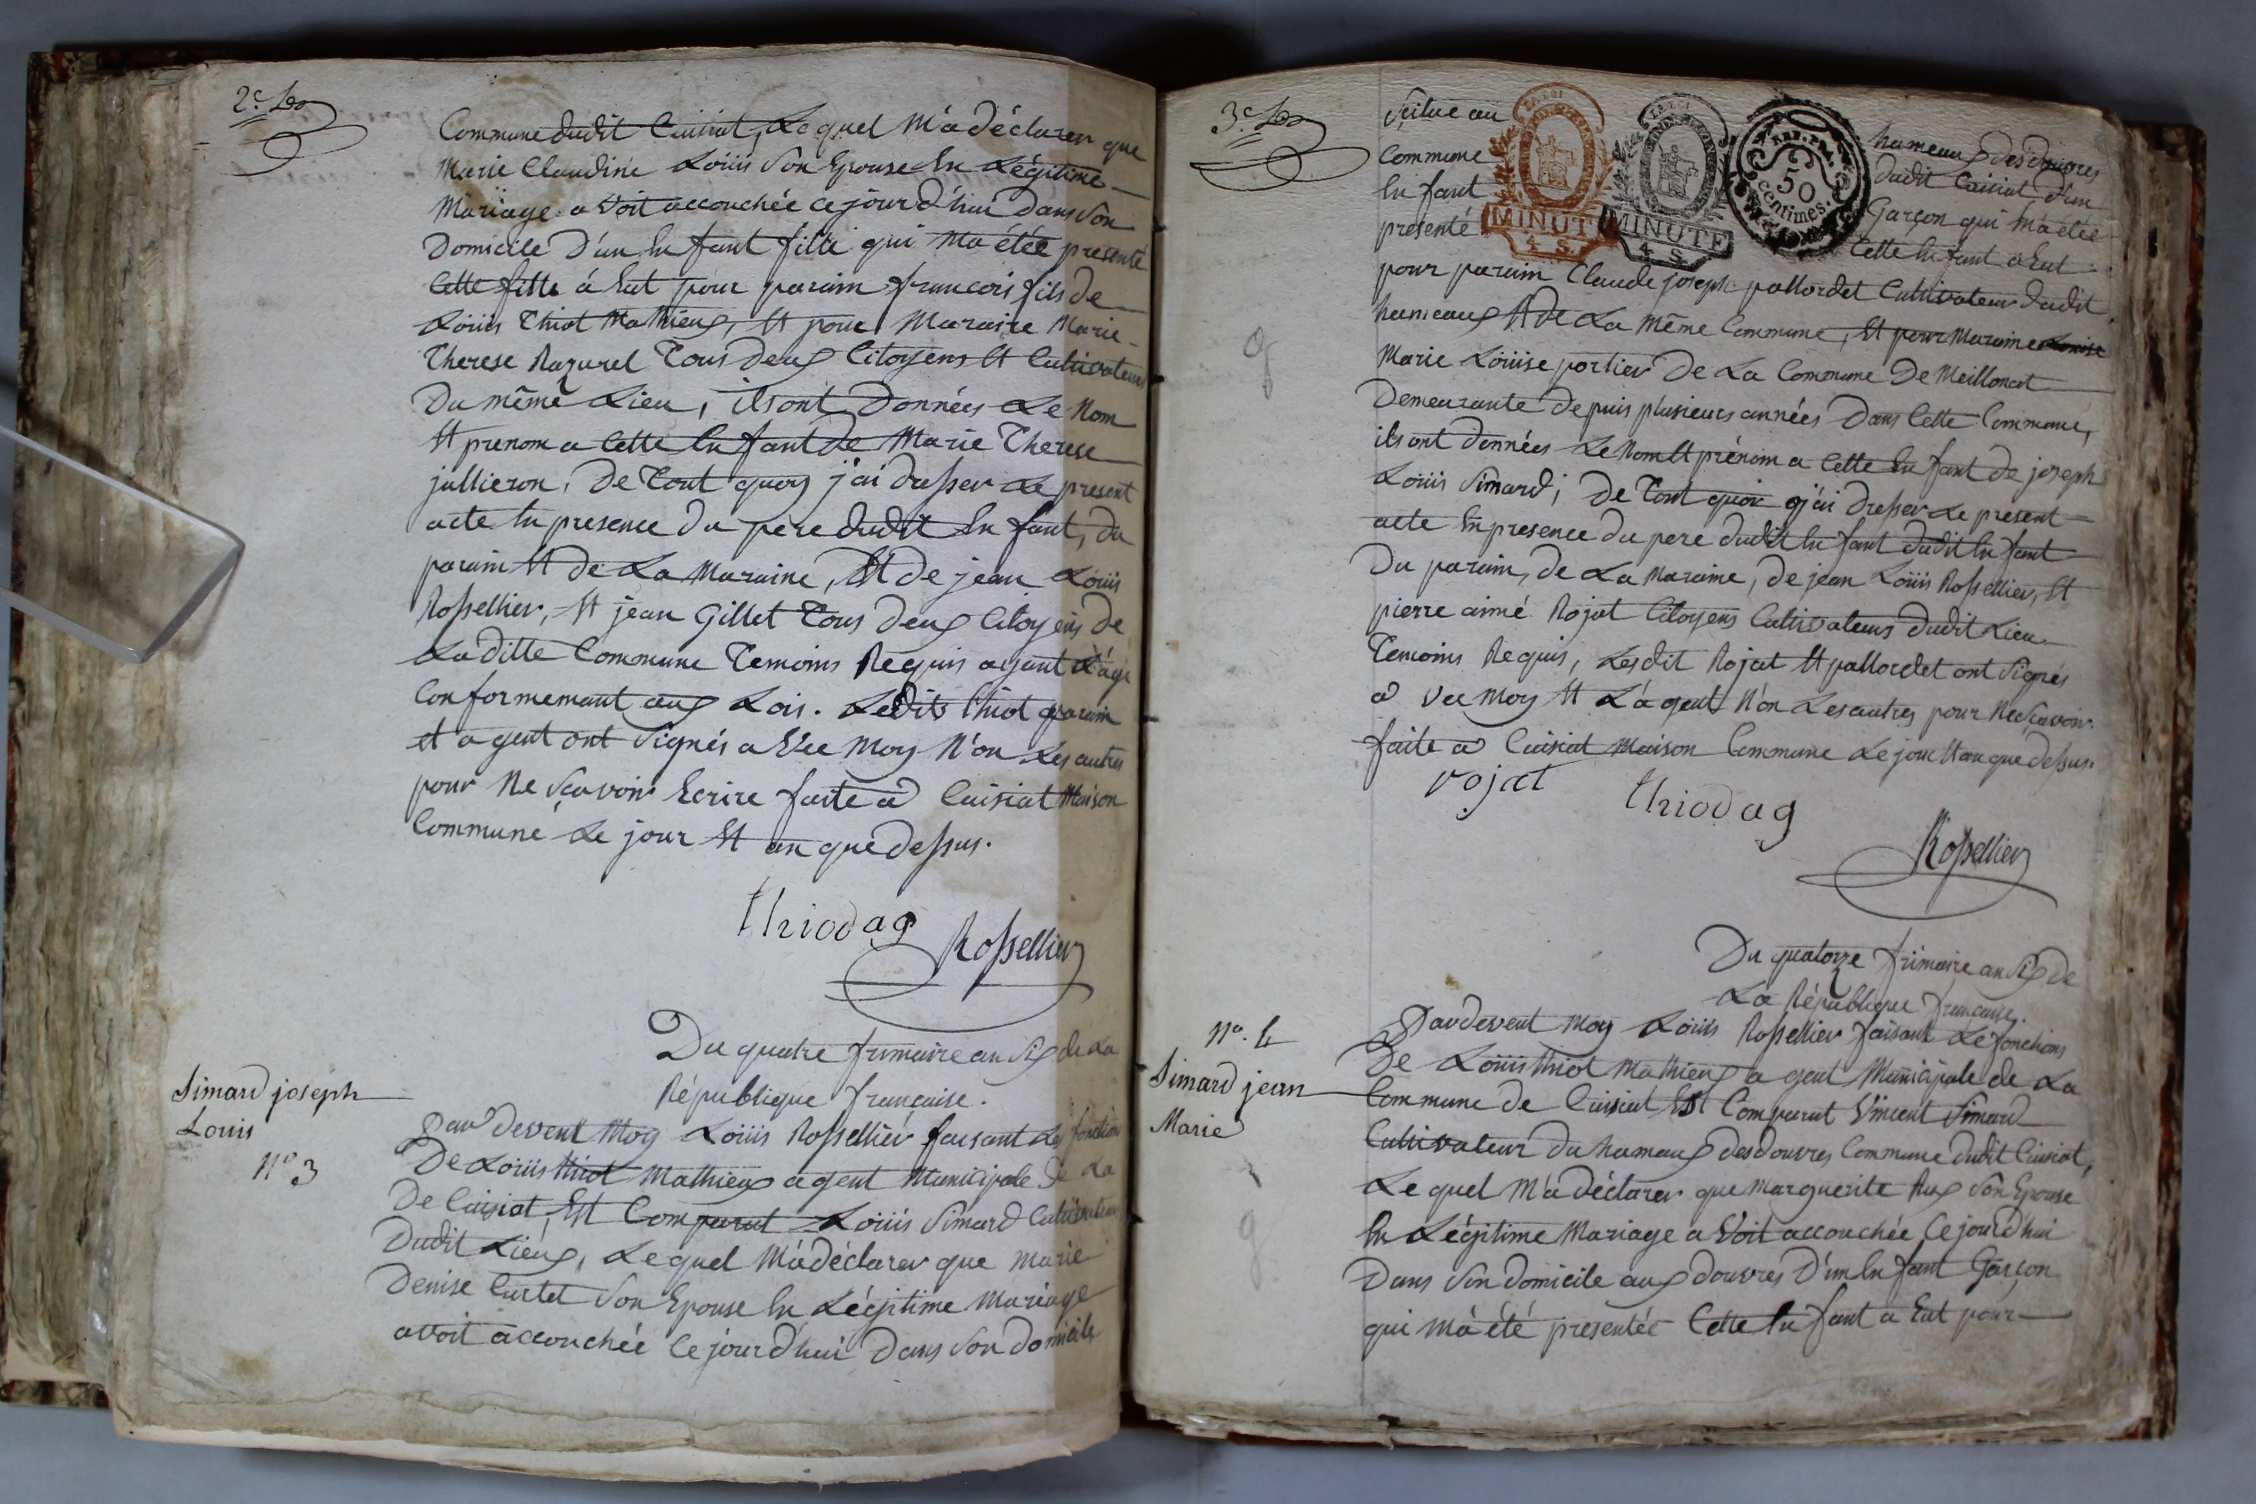 2e
Commune dudit Cuisiat, Lequel M'a déclarer que
Marie Claudine Loüis Son Epouse En Légitime
Mariage a voit accouchée ce jourd'hui dans Son
Domicile D'un En fant fille qui Ma étée presenté
Cette fille á Eut pour parain francois fils de
Loüis Thiot Mathieux, Et pour Maraine Marie
Therese Razurel Tous deux Citoyens Et Cultivateurs
Du même Lieu, ils ont Données Le Nom
Et prenom a Cette En fant de Marie Therese
jullieron, De Tout quoy j'ai dresser Le present
acte En presence du pere dudit En fant, du
parain Et de La Maraine, Et de jean Loüis
Rossellier, Et jean Gillet Tous deux Citoyens de
La ditte Commune Temoins Requis ayant L'age
Conformement aux Lois. Ledit thiot parain
et agent ont Signés a Vec Moy N'on Les autres
pour Ne Scavoir Ecrire faite a Cuisiat Maison
Commune Le jour Et an que dessus.
thiod ag
Rossellier
Du quatre frimaire an Six de La
République française.
Simard joseph
Louis
N° 3
Par devent Moy Loüis Rossellier faisant Les fonction
De Loüis thiot Mathieux agent Municipale de La
De Cuisiat, Est Comparut Loüis Simard Cultivateur
Dudit Lieux, Lequel M'a déclarer que Marie
Denise Curtet Son Epouse En Légitime Mariage
avoit accouchée Ce jourd'hui Dans Son domicile
3e
Scitue au hameaux des douvres
Commune dudit Cuisiat d'un
En fant Garçon qui M'a étée
presenté Cette En fant a Eut
MINUTE
4 S.
MINUTE
4 S.
REP. FRA.
50
centimes.
pour parain Claude joseph pallordet Cultivateur dudit
hameaux Et de La même Commune, Et pour Maraine Louise
Marie Loüise portier De La Commune De Meillonat
Demeurante depuis plusieurs années Dans Cette Commune,
ils ont données Le Nom Et prénom a Cette En fant de joseph
Loüis Simard; De Tout quoi j'ai dresser Le present
acte En presence du pere dudit En fant dudit En fant
Du parain, de La Maraine, de jean Loüis Rossellier, Et
pierre aimé Rojat Citoyens Cultivateurs dudit Lieu
Temoins Requis, Lesdit Rojat Et pallordet ont Signés
a Vec Moy Et L'agent N'on Les autres pour Ne Scavoir.
faite a Cuisiat Maison Commune Le jour Et an que dessus.
rojat
thiod ag
Rossellier
Du quatorze frimaire an Six de
La République française.
N°. 4
Simard jean
Marie
Pardevent Moy Loüis Rossellier faisant Le fonctions
De Loüis thiot Mathieux agent Municipale de La
Commune de Cuisiat Est Comparut Vincent Simard
Cultivateur du hameaux des douvres Commune dudit Cuisiat,
Le quel M'a déclarer que Marguerite Rux Son Epouse
En Légitime Mariage a Voit accouchée Ce jourd'hui
Dans Son domicile aux douvres D'un En fant Garçon
qui M'a été presentée Cette En fant a Eut pour